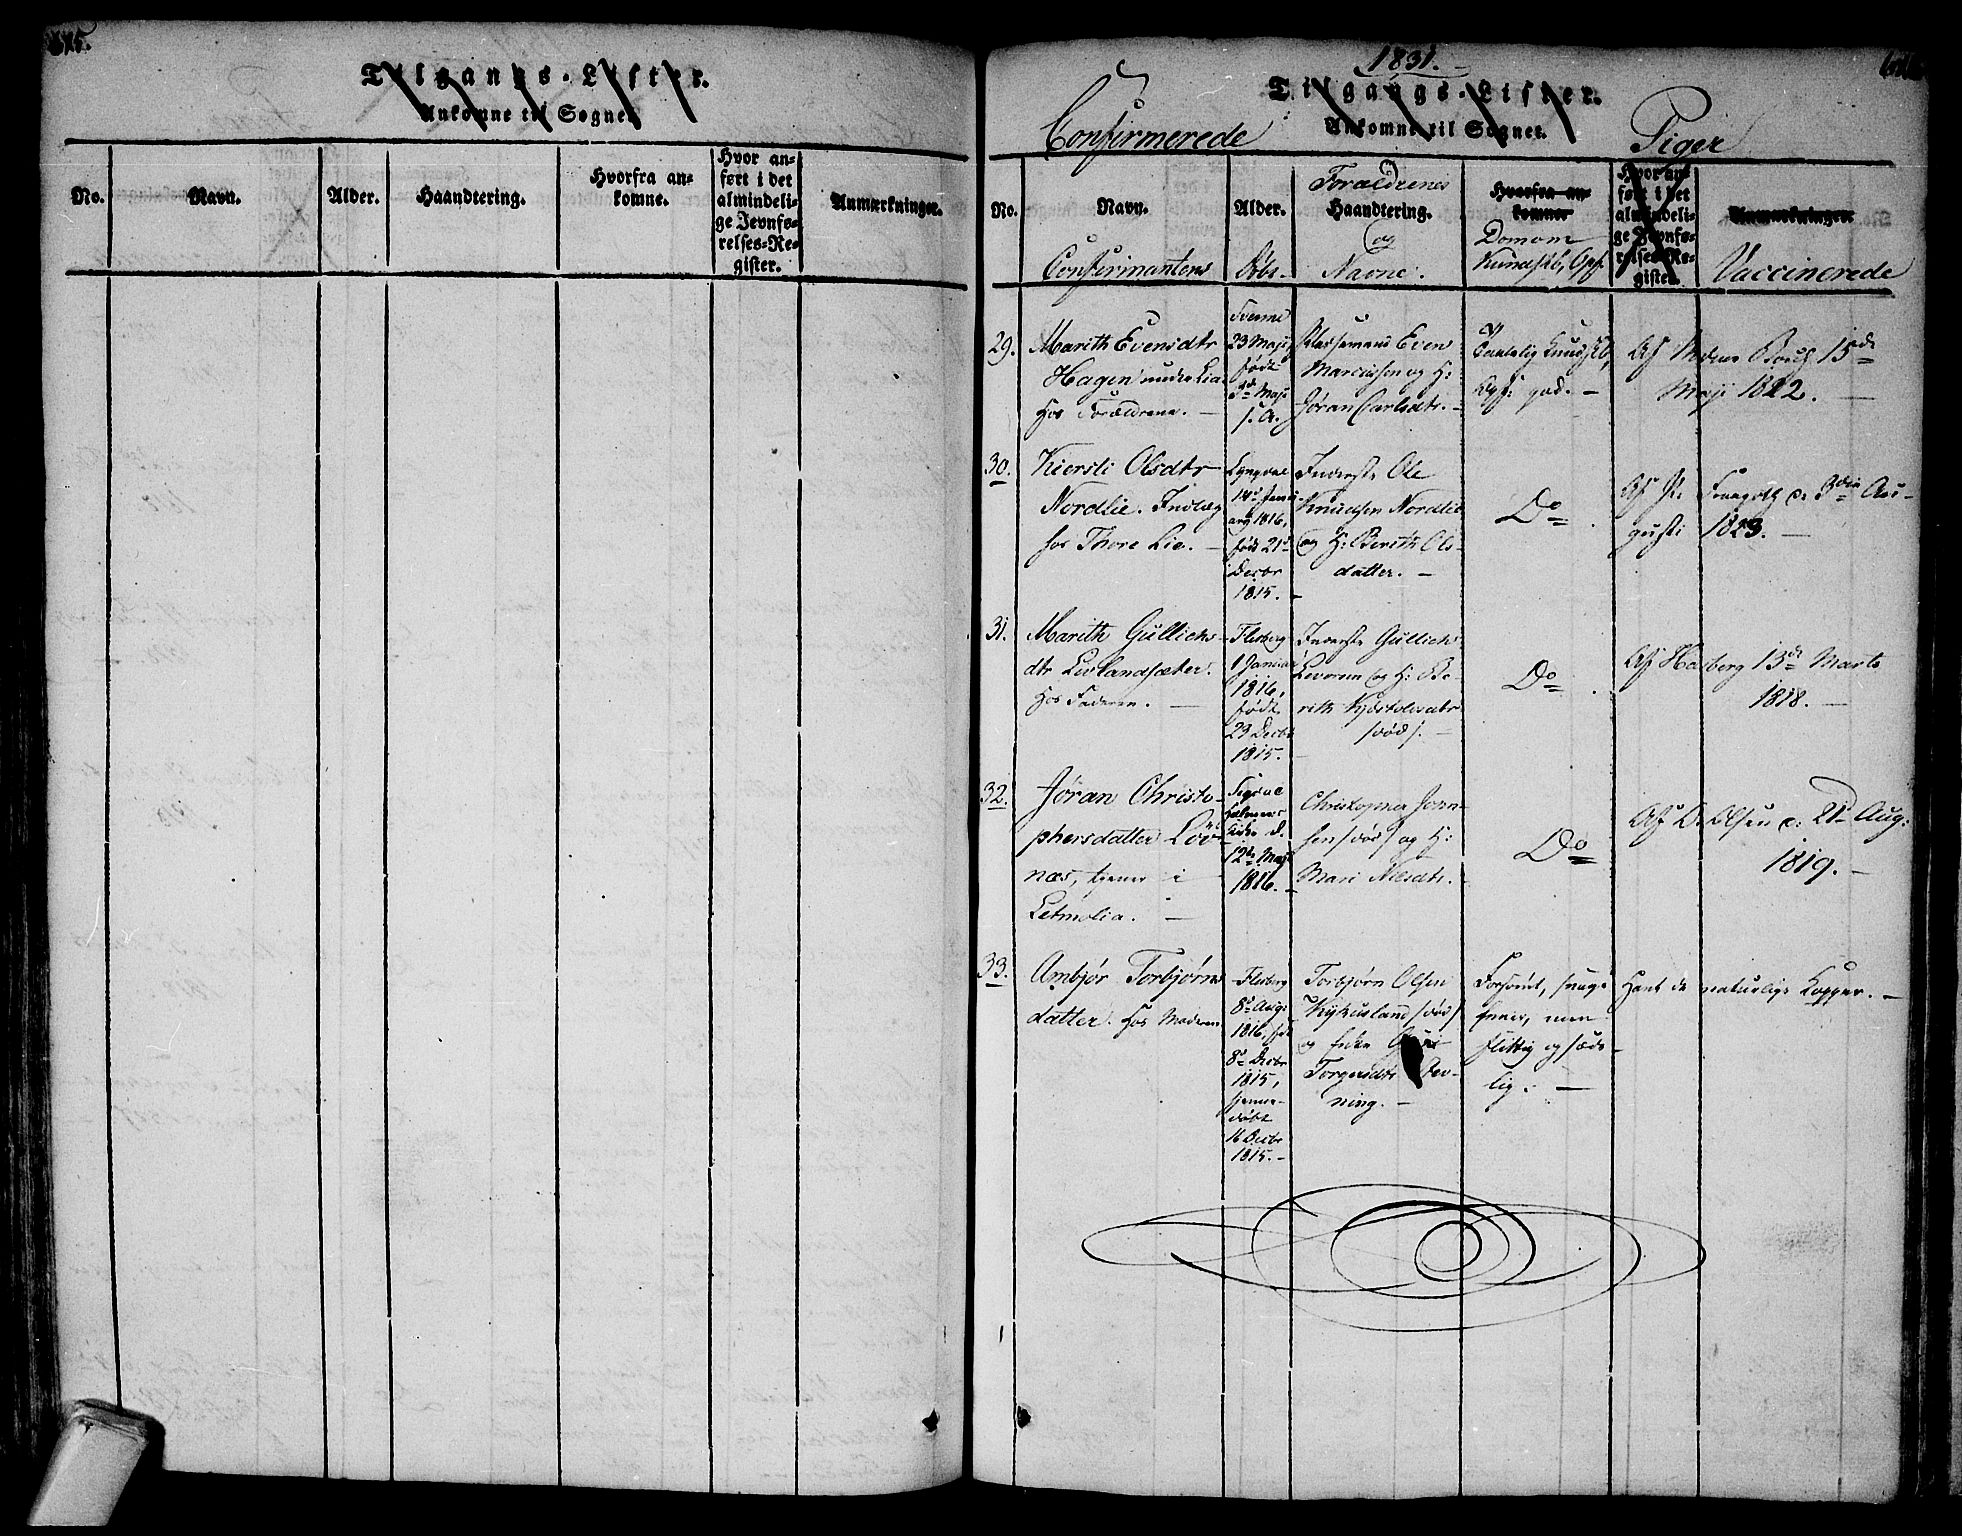 Tilgangs-Lister.
Ankomne til Sognet.
No.
Navn.
Alder.
Haandtering.
Hvorfra an-
komne.
Hvor an-
ført i det
almindeli-
ge Jevnfø-
relses-Re-
gister.
Anmærkninger.
1831.
Tilgangs-Lister.
Ankomne til Sognet.
Confirmerede
Piger
No.
Navn.
Confirmantens
Alder.
Døbt.
Forældrenes
Haandtering.
og
Navne.
Hvorfra an-
komne
Dom om
Kundskb, Opf.
Hvor an-
ført i det
almindeli-
ge Jevnfø-
relses-Re-
gister.
Anmærkninger.
Vaccinerede
29.
Marith Evensdtr
Hagen under Lia
hos Forældrene. —
Svenne
23 Maji
født
3d Maji
s. A.
Pladsemand Even
Marcussen og H:
Jøran Carlsdtr. —
Kundsk,
Opf: god. —
Af Bouch 15de
Maji 1822. —
30.
Kiersti Olsdtr
Nordlie. Indlæg
hos Thore Lie. —
Lyngdal
14d Janu-
ary 1816,
født 21d
Decbr
1815. —
Inderste Ole
Knudsen Nordlie
og H: Berith Ols-
datter. —
Do
Af Hr d: 3die Au-
gusti 1823. —
31.
Marith Gullichs-
dtr Livlandsæter.
hos Faderen. —
Flesberg
1 Januar
1816,
født
29 Decbr
1815. —
Inderste Gullich
Levorsen og H: Be-
rith Kjøstolsdatr
/død/. —
Do
Af Hasberg 13de Marts
1818. —
32.
Jøran Christo-
phersdatter Löv-
næs, tjener i
Letmolia. —
Sigdal
Holmens
Kirke d.
12te Maji
1816. —
Christopher John-
sen /død/ og H:
Mari Nilsdtr. —
Do
Af D. Olsen d: 21d Aug:
1819. —
33.
Ambjør Torbjørns
datter. hos Moderen
Flesberg
8d Augs
1816, født
8d Decbr
1815,
hjemme-
døbt
16 Decbr
1815. —
Torbjørn Olsen
/død/
og Enke
Torgersdtr Dev-
ning. —
Forsømt, svage
Evner, men
flittig og sæde-
lig. —
Havt de naturlige Kopper. —